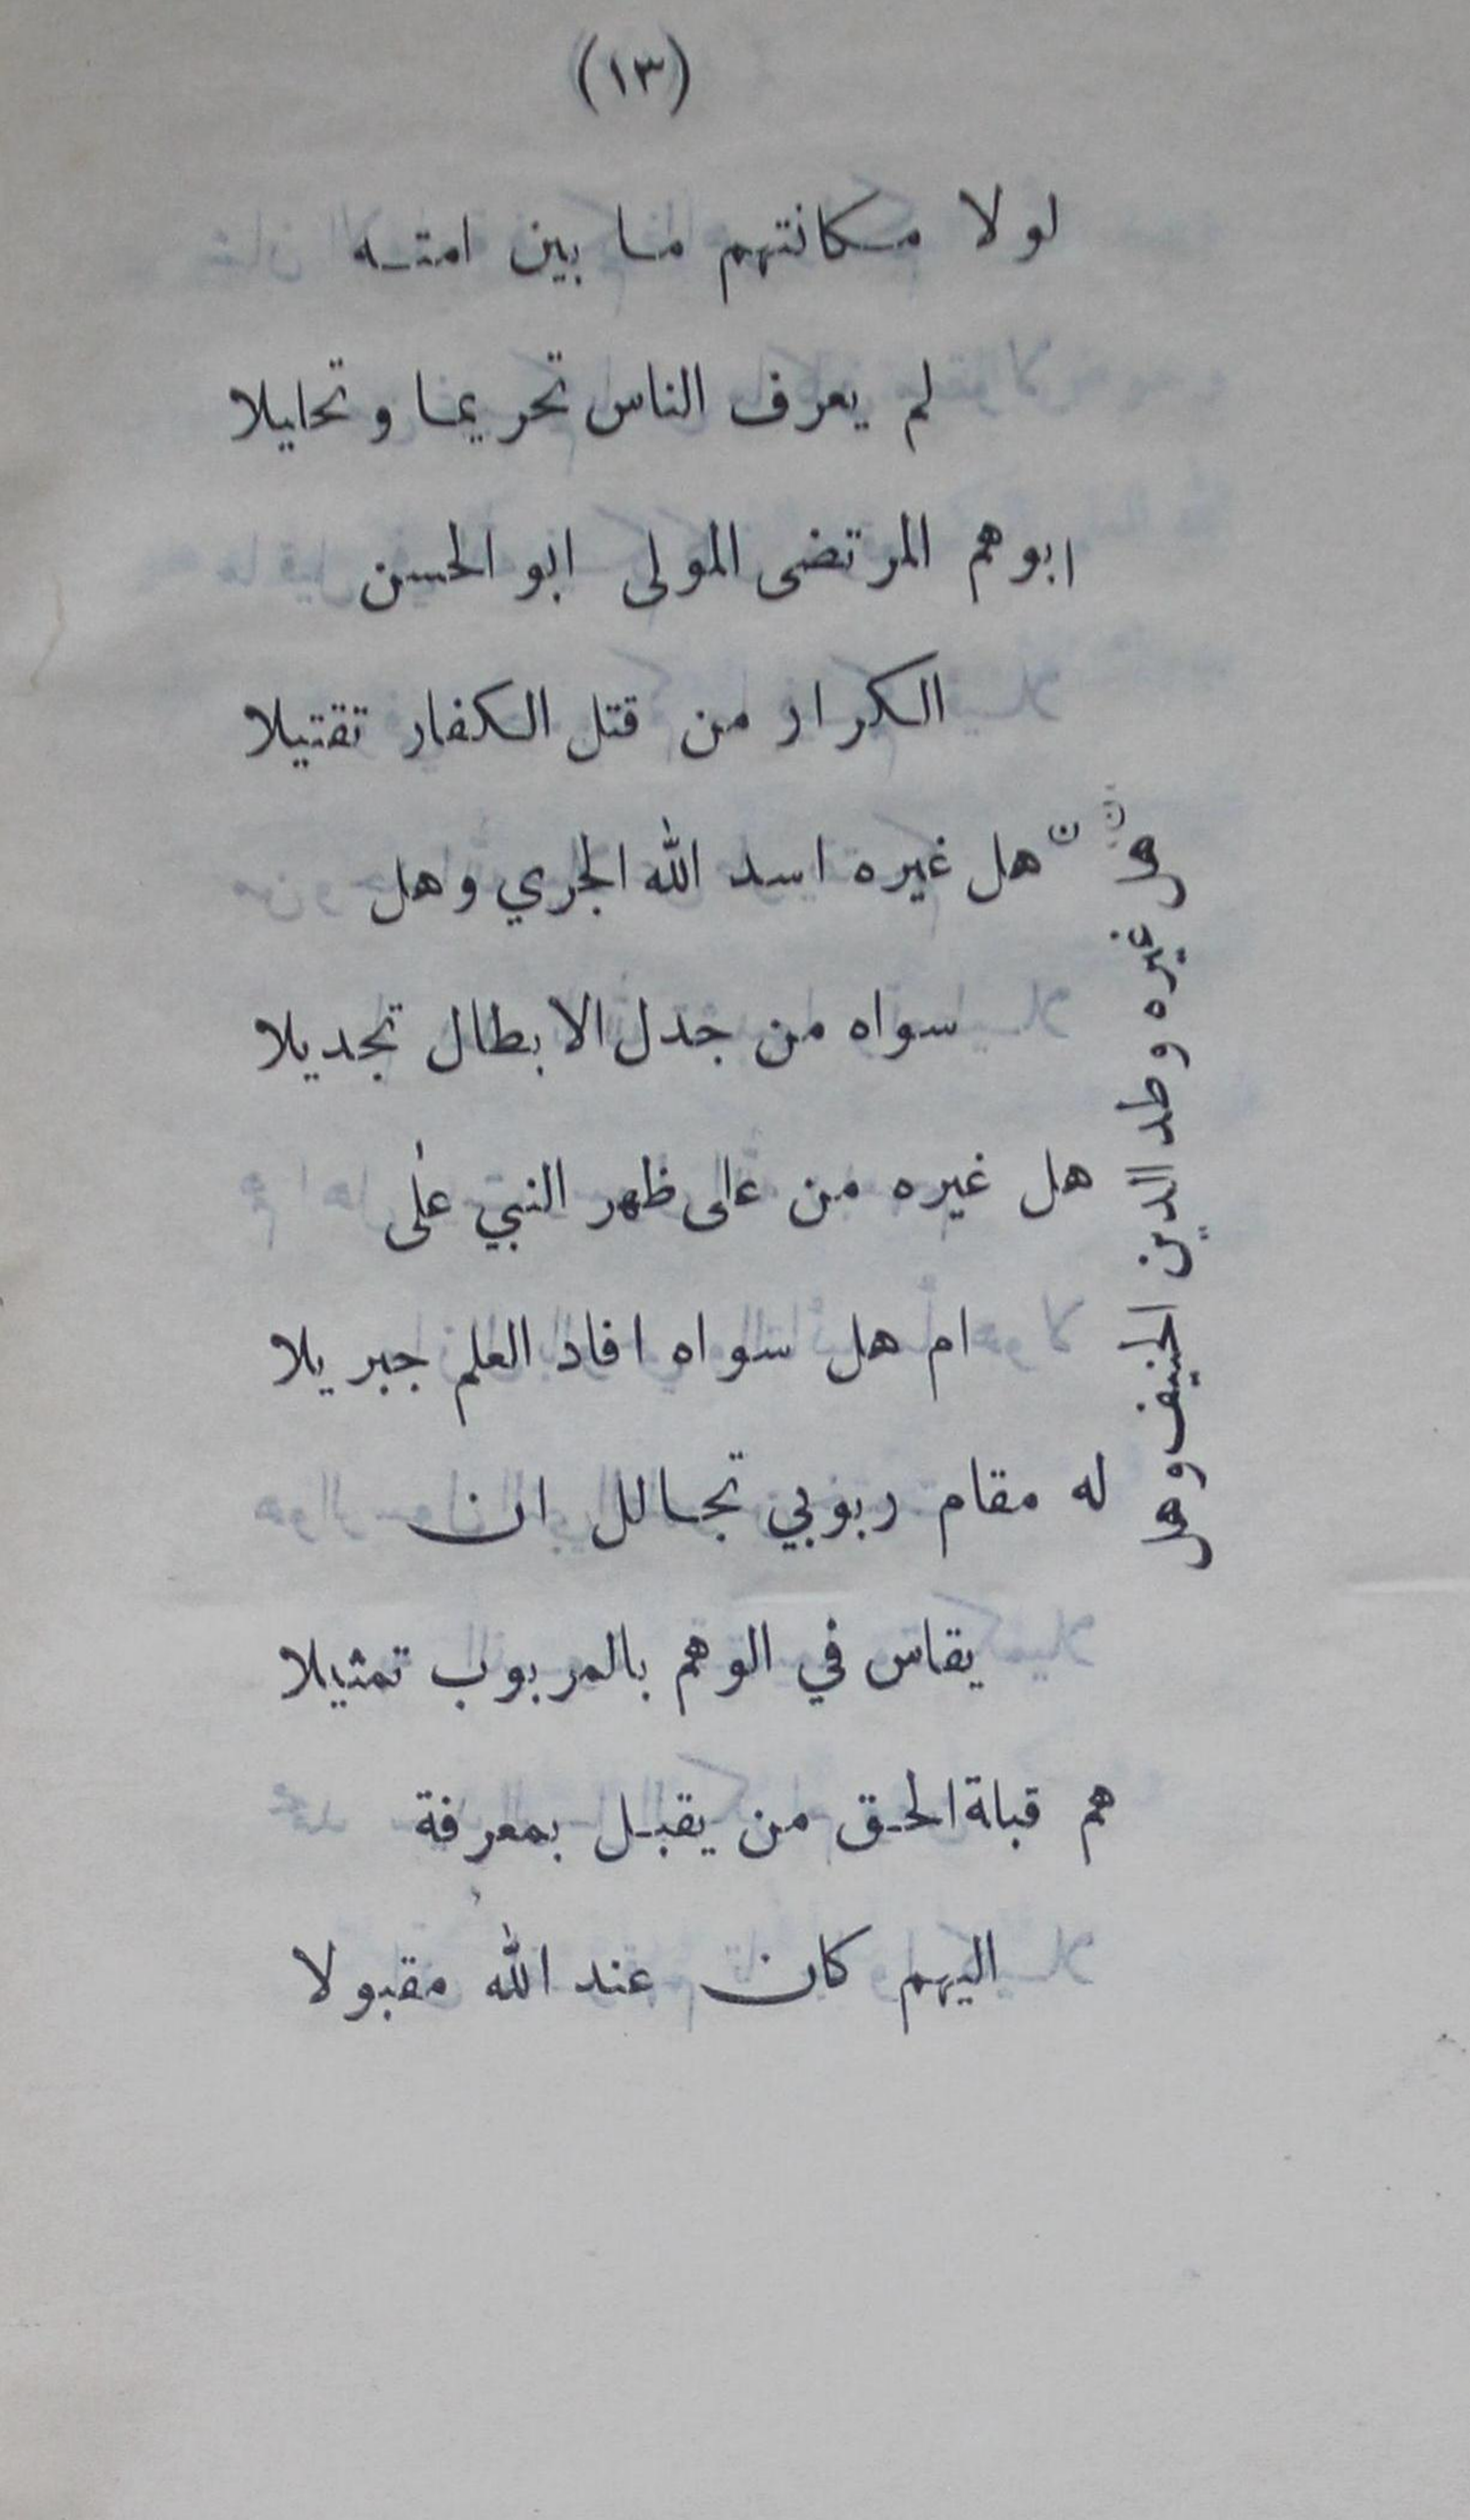 (١٣)
لولا مكانتهم ما بين امته
لم يعرف الناس تحريما وتحليلا
ابوهم المرتضى المولى ابو الحسن
الكرار من قتل الكفار تقتيلا
هل غيره اسد الله الجري وهل
سواه من جدل الابطال تجديلا
هل غيره من على ظهر النبي على
ام هل سواه افاد العلم جبريلا
له مقام ربوبي تجالل ان
يقاس في الوهم بالمربوب تمثيلا
هم قبلة الحق من يقبل بمعرفة
اليهم كان عند الله مقبولا
هل غيره وطد الدين الحنيف وهل